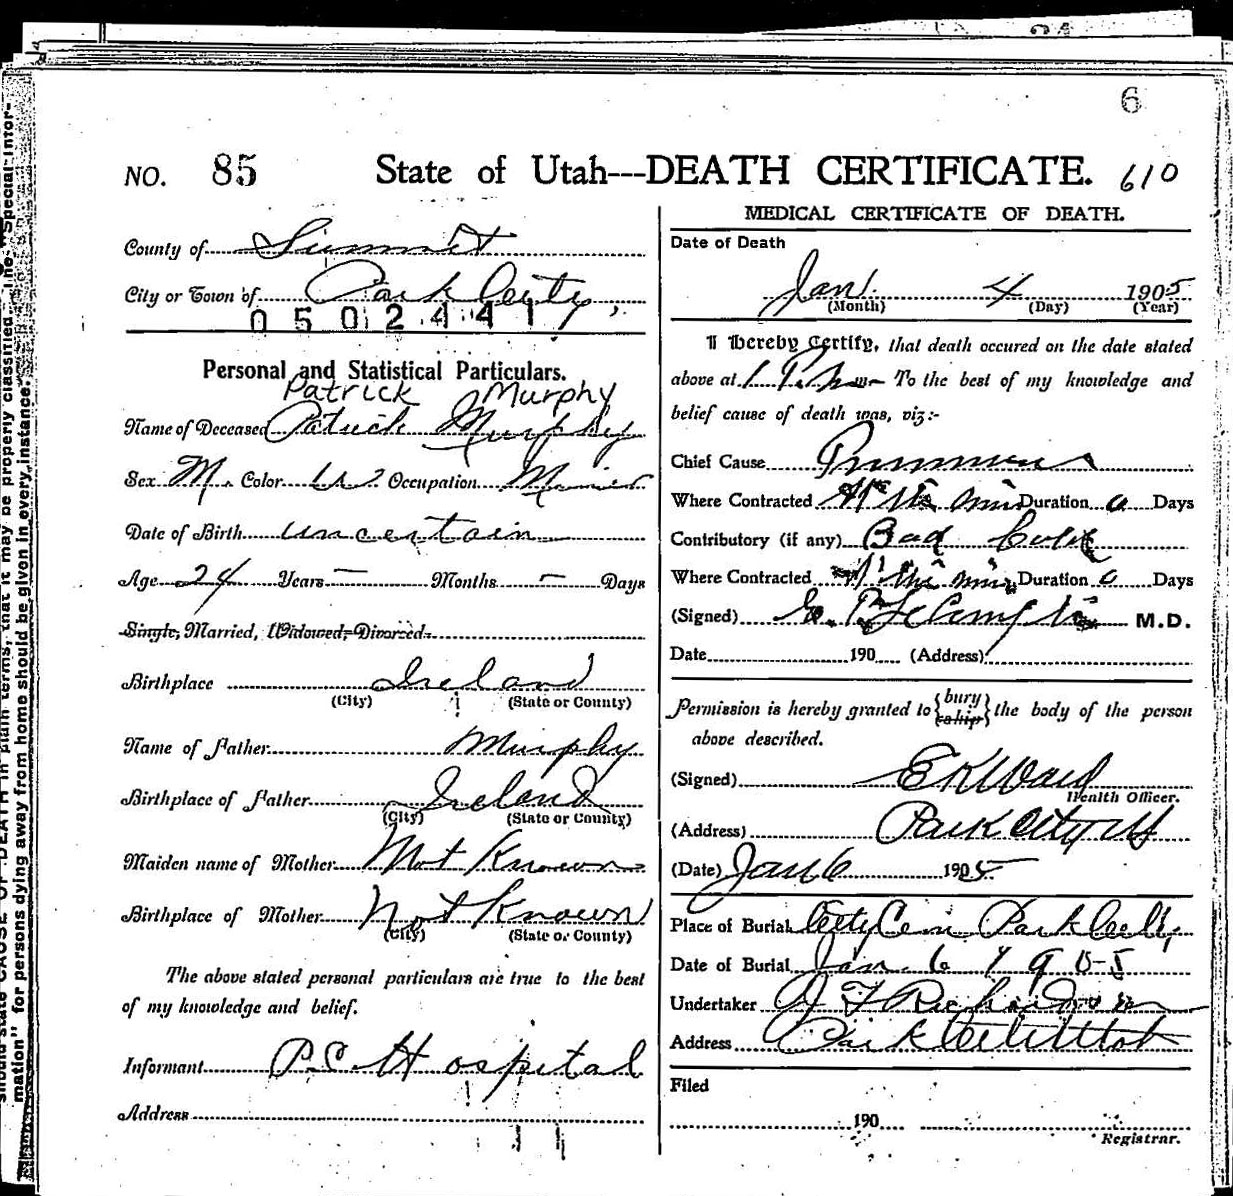 6
NO. 85 State of Utah---DEATH CERTIFICATE. 610
County of Summit
City or Town of Park City,
0502441
Personal and Statistical Particulars.
Patrick Murphy
Name of Deceased Patrick Murphy
Sex M. Color W Occupation Miner
Date of Birth uncertain
Age 24 Years — Months — Days
Single, Married, Widowed, Divorced.
Birthplace Ireland
(City) (State or County)
Name of Father Murphy
Birthplace of Father Ireland
(City) (State or County)
Maiden name of Mother Not Known
Birthplace of Mother Not Known
(City) (State or County)
The above stated personal particulars are true to the best
of my knowledge and belief.
Informant P.C. Hospital
Address
MEDICAL CERTIFICATE OF DEATH.
Date of Death
Jan. 4 1905
(Month) (Day) (Year)
I hereby Certify, that death occured on the date stated
above at 1 P.m To the best of my knowledge and
belief cause of death was, viz:-
Chief Cause Pneumonia
Where Contracted Duration Days
Contributory (if any) Bad Cold
Where Contracted Duration Days
(Signed) M.D.
Date 190 (Address)
Permission is hereby granted to {bury ship} the body of the person
above described.
(Signed) E K Ward
Health Officer.
(Address) Park City Ut
(Date) Jan 6 1905
Place of Burial City Cem Park City
Date of Burial Jan. 6 1905
Undertaker Richardson
Address Park City Utah
Filed
190
Registrar.
mation" for persons dying away from home should be given in every instance.